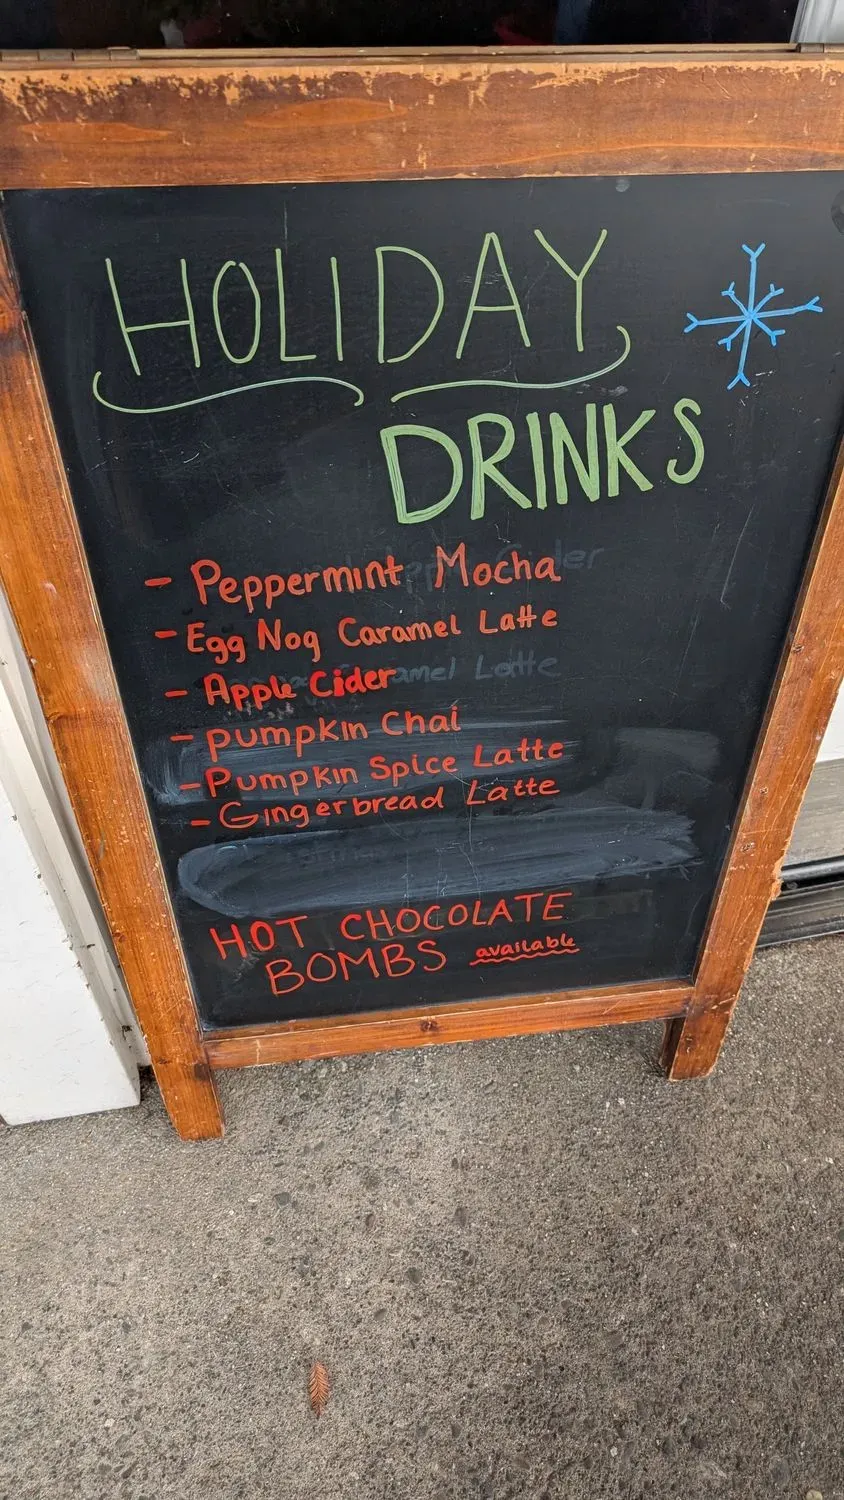 HOLIDAY
DRINKS
- Peppermint Mocha
- Egg Nog Caramel Latte
- Apple Cider
- Pumpkin Chai
- Pumpkin Spice Latte
- Gingerbread Latte
HOT CHOCOLATE
BOMBS available